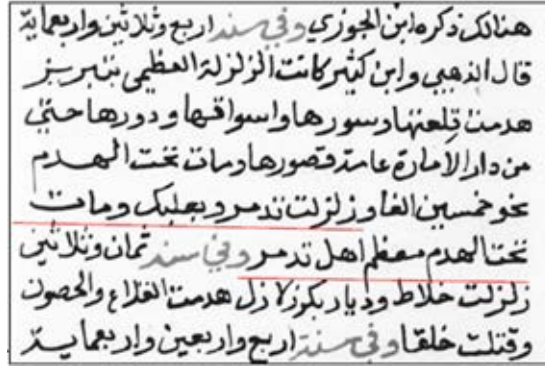 هنالك ذكره ابن الجوزي وفي سنة اربع وثلاثين واربعماية
قال الذهبي وابن كثير كانت الزلزلة العظمى بتبريز
هدمت قلعتها وسورها واسواقها ودورها حتى
من دار الامارة عامة قصورها ومات تحت الهدم
نحو خمسين الفا وزلزلت تدمر وبعلبك ومات
تحت الهدم معظم اهل تدمر وفي سنة ثمان وثلاثين
زلزلت خلاط وديار بكر زلازل هدمت القلاع والحصون
وقتلت خلقا وفي سنة اربع واربعين واربعماية